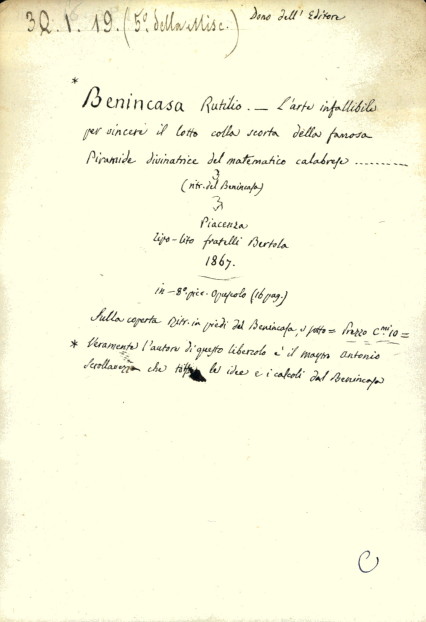 3Q. 1. 19. (5º. della Misc.)
Dono dell'Editore
* Benincasa Rutilio. — L'arte infallibile
per vincere il lotto colla scorta della famosa
Piramide divinatrice del matematico calabrese ..........
(ritr. del Benincasa)
Piacenza
tipo-lito fratelli Bertola
1867.
in-8º. picc. Opuscolo (16 pag.)
Sulla coperta Ritr. in piedi del Benincasa, e sotto = Prezzo C.mi 10 =
* Veramente l'autore di questo libercolo è il Antonio
che le idee e i calcoli dal Benincasa
C